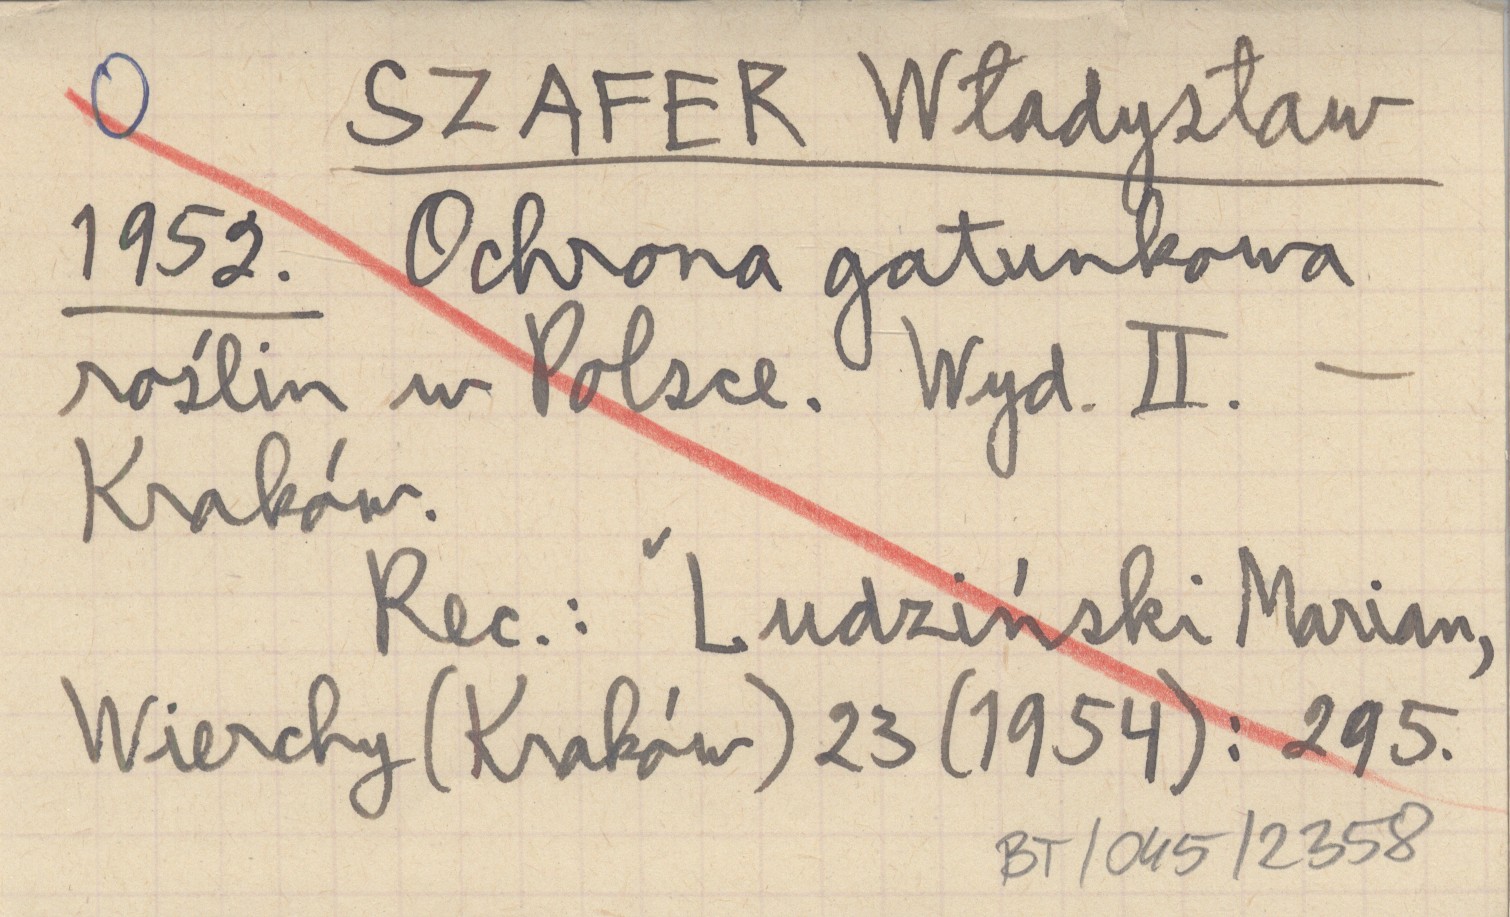 O SZAFER Władysław
1952. Ochrona gatunkowa
roślin w Polsce. Wyd. II. —
Kraków.
Rec.: ✓Ludziński Marian,
Wierchy (Kraków) 23 (1954): 295.
BT/045/2358